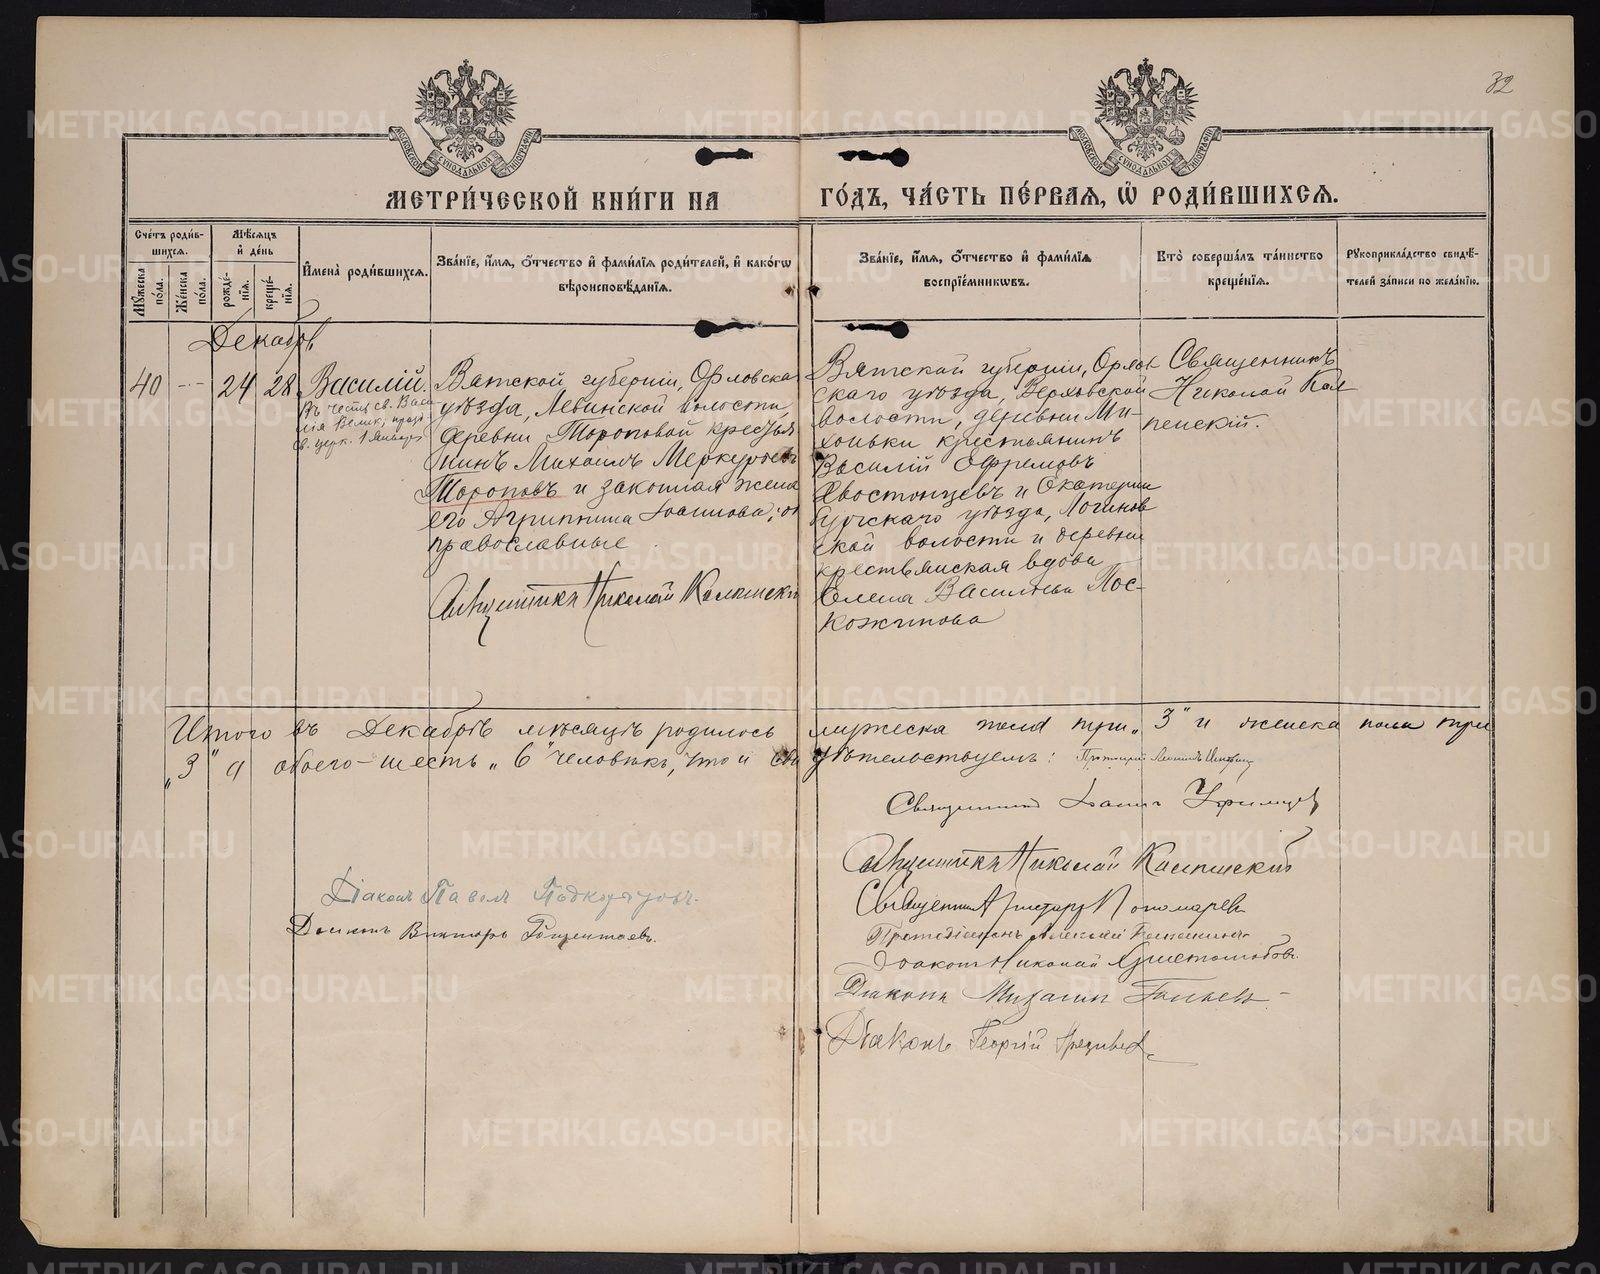 32
МОСКОВСКОЙ СѴНОДАЛЬНОЙ ТИПОГРАФІИ
МОСКОВСКОЙ СѴНОДАЛЬНОЙ ТИПОГРАФІИ
МЕТРИ́ЧЕСКОЙ КНИ́ГИ НА ГО́ДЪ, ЧА́СТЬ ПЕ́РВАѦ, Ѡ҆ РОДИ́ВШИХСѦ.
Сче́тъ роди́в-
шихсѧ.
Мꙋ́жеска по́ла.
Же́нска по́ла.
Мѣ́сѧцъ
и҆ де́нь
рожде́-
нїѧ.
креще́-
нїѧ.
И҆мена̀ роди́вшихсѧ.
Зва́нїе, и҆́мѧ, ѻ҆́тчество и҆ фами́лїѧ роди́телей, и҆ како́гѡ
вѣроисповѣ́данїѧ.
Зва́нїе, и҆́мѧ, ѻ҆́тчество и҆ фами́лїѧ
воспрїе́мникѡвъ.
Кто̀ соверша́лъ та́инство
креще́нїѧ.
Рꙋкоприкла́дство свидѣ́-
телей за́писи по жела́нїю.
Декабрь
40 - 24 28 Василій.
Въ честь св. Васи-
лія Велик; празд
св. церк. 1 Января
Вятской губерніи, Орловска
уѣзда, Левинской волости,
деревни Тороповой крестья
нинъ Михаилъ Меркурьевъ
Тороповъ и законная жена
его Агриппина Іоаннова; об
православные
Священникъ Николай
Вятской губерніи, Орлов
скаго уѣзда, Верховской
волости, деревни Ми-
хоньки крестьянинъ
Василій Ефремовъ
Хвостонцевъ и Екатерин
бургскаго уѣзда, Логинов
ской волости и деревни
крестьянская вдова
Елена Васильева Пос-
кожинова
Священникъ
Николай
пенскій.
Итого въ Декабрѣ мѣсяцѣ родилось мужеска пола три „3" и женска пола три
„3" а обоего-шесть „6" человѣкъ, что и свидѣтельствуемъ: Протоіерей
Священникъ Іоаннъ
Священникъ Николай
Священникъ Аристархъ Пономаревъ
Протодіаконъ Алексій
Діаконъ Николай Христолюбовъ.
Діаконъ Михаилъ
Діаконъ Георгій
Діаконъ Павелъ Подкорытовъ.
Діаконъ Викторъ
METRIKI.GASO-URAL.RU